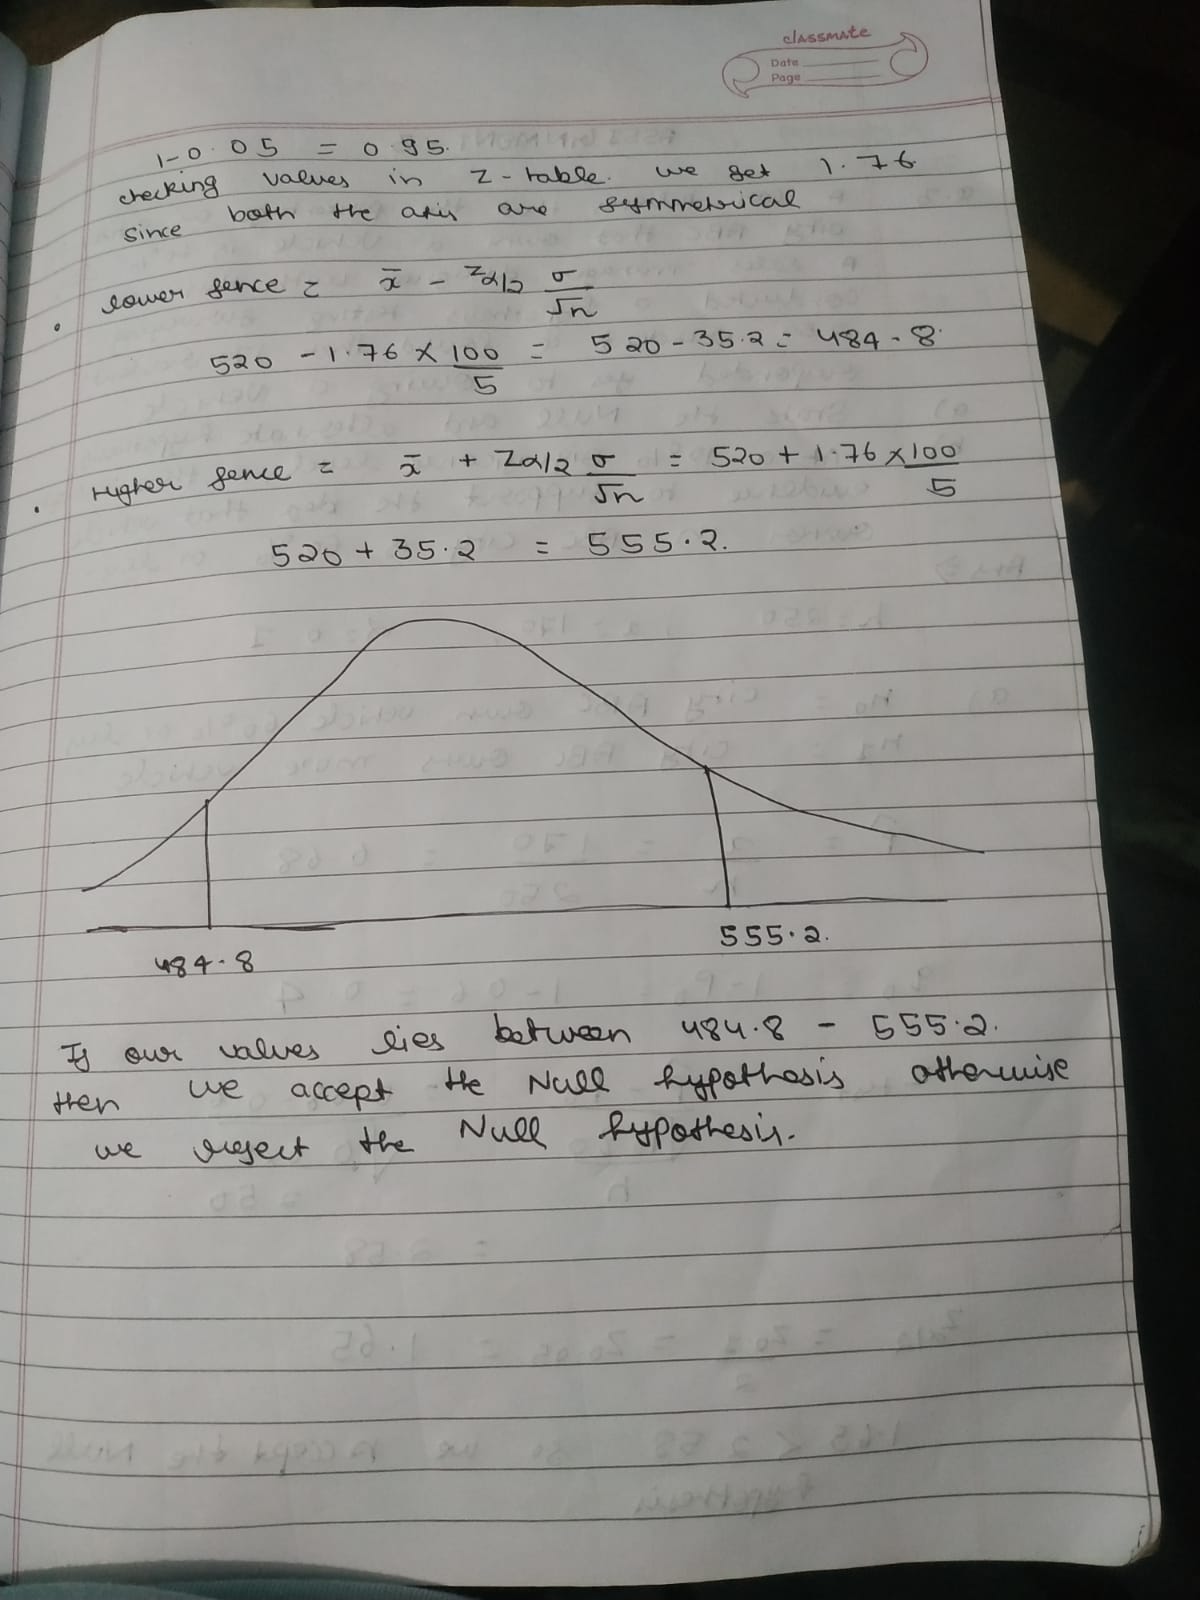 classmate
Date
Page
1-0.05 = 0.95.
checking values in Z-table. we get 1.76
since both the axis are symmetrical
• lower fence = x̄ - Zα/2 σ/√n
520 - 1.76 × 100/5 = 520 - 35.2 = 484.8
• Higher fence = x̄ + Zα/2 σ/√n = 520 + 1.76 × 100/5
520 + 35.2 = 555.2.
484.8 555.2.
If our values lies between 484.8 - 555.2.
then we accept the Null hypothesis otherwise
we reject the Null hypothesis.